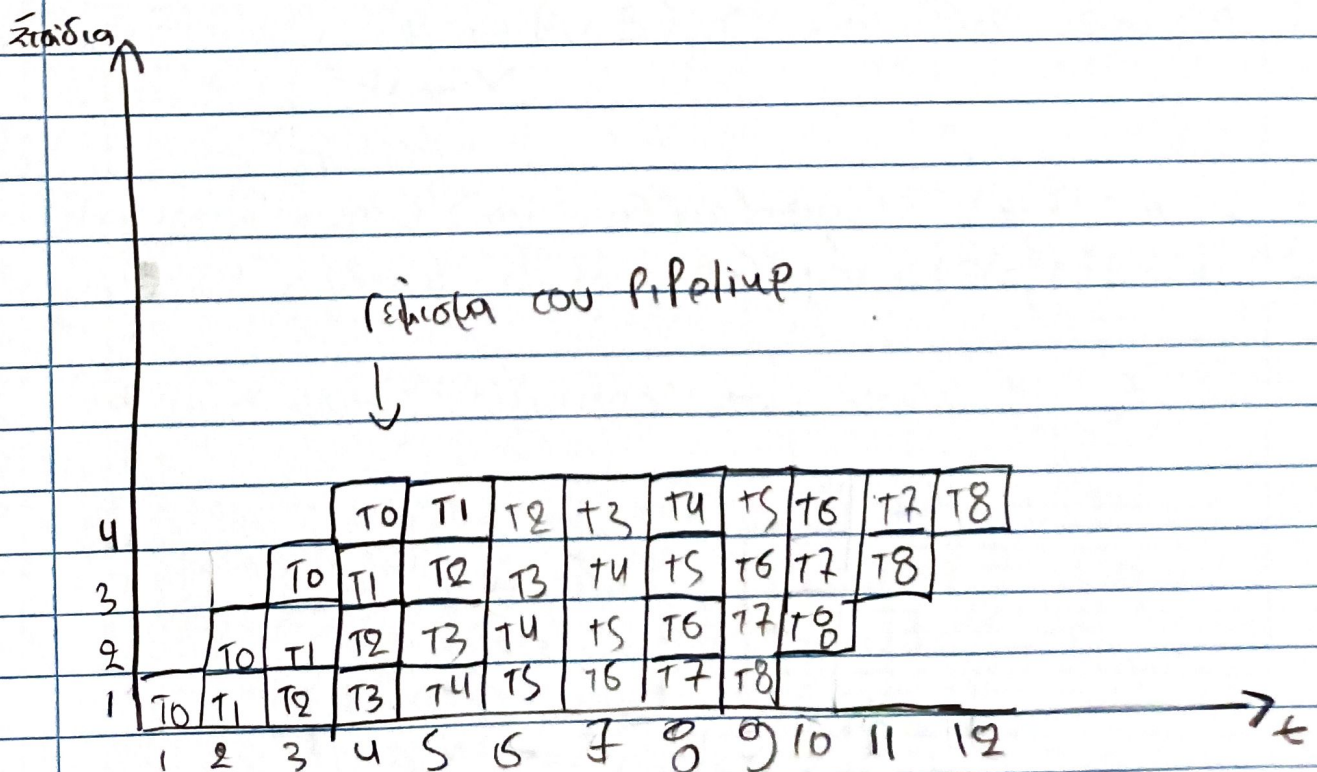 Στάδια
Γέμισμα του Pipeline
4 T0 T1 T2 T3 T4 T5 T6 T7 T8
3 T0 T1 T2 T3 T4 T5 T6 T7 T8
2 T0 T1 T2 T3 T4 T5 T6 T7 T8
1 T0 T1 T2 T3 T4 T5 T6 T7 T8
1 2 3 4 5 6 7 8 9 10 11 12 t